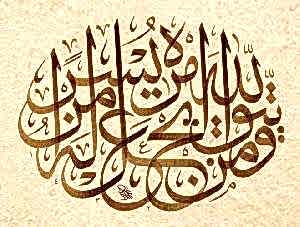 ومن يتق الله يجعل له من أمره يسرا